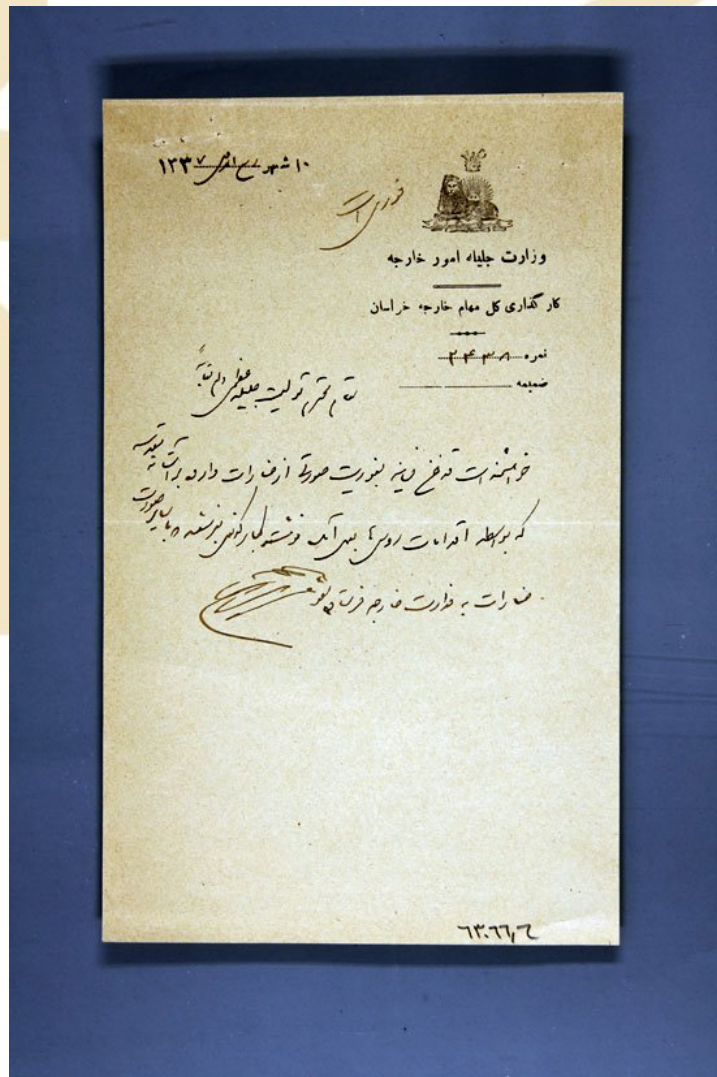 ۱۰ شهر ربیع الاول ۱۳۳۷
فوری است
وزارت جلیله امور خارجه
کارگذاری کل مهام خارجه خراسان
نمره ۲۴۳۸
ضمیمه
مقام محترم تولیت جلیله عظمی دام اقباله
خواهشمند است قدغن فرمایند بفوریت صورتی از خسارات وارده برآستانه مقدسه
که بواسطه اقدامات روسها بعمل آمده نوشته بکارگذاری بفرستند باید صورت
خسارات به وزارت خارجه فرستاده شود
٦٣٠٦٦/٦